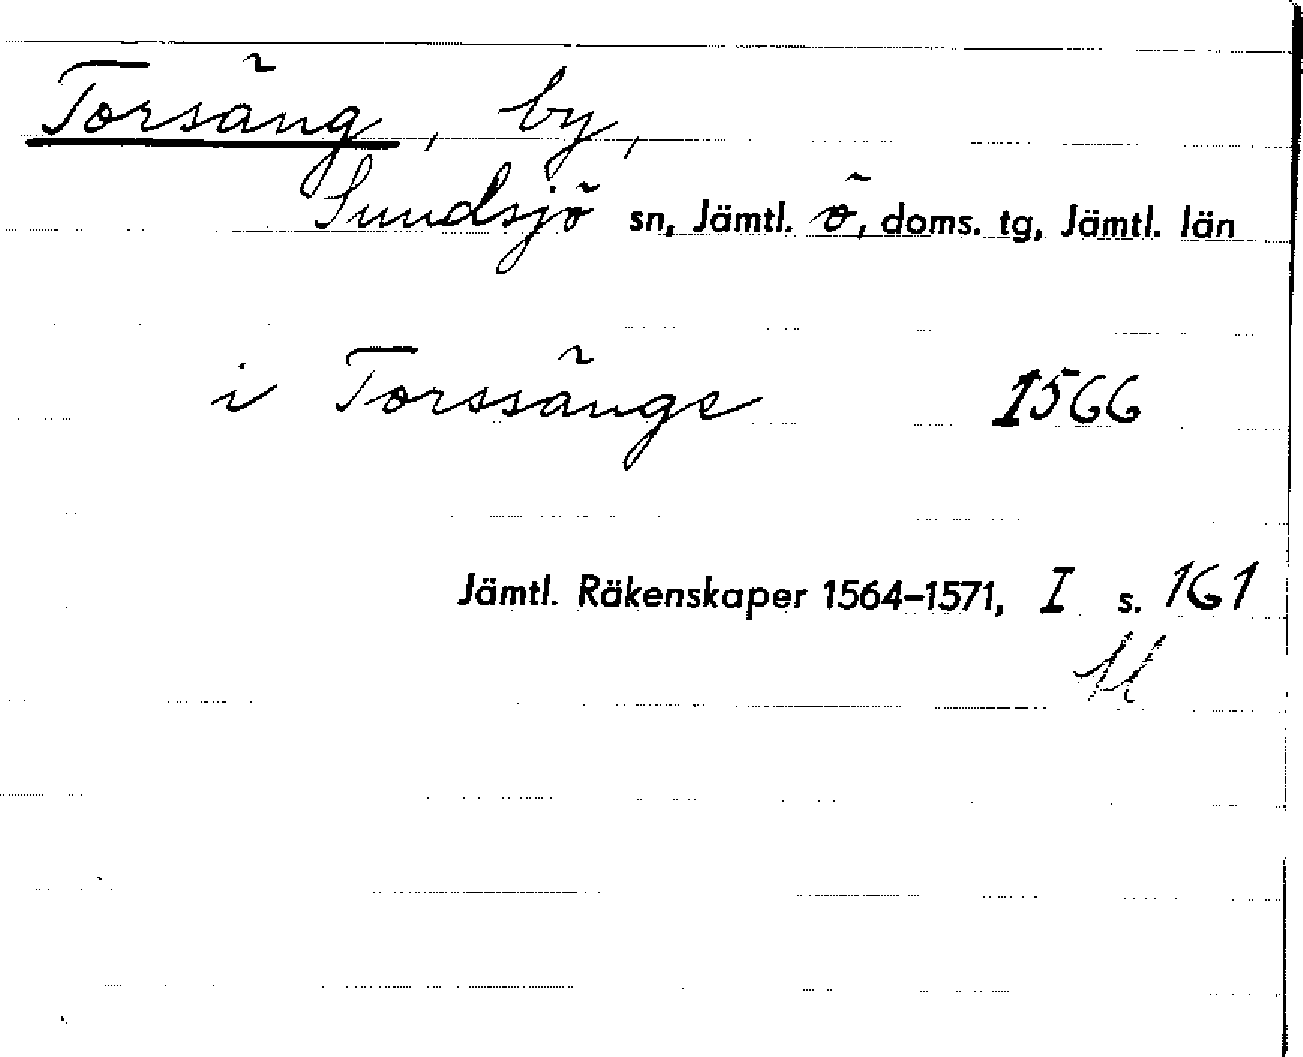 Torsäng, by,
Sundsjö sn, Jämtl. ö, doms. tg, Jämtl. län
i Torssänge 1566
Jämtl. Räkenskaper 1564–1571, I s. 161